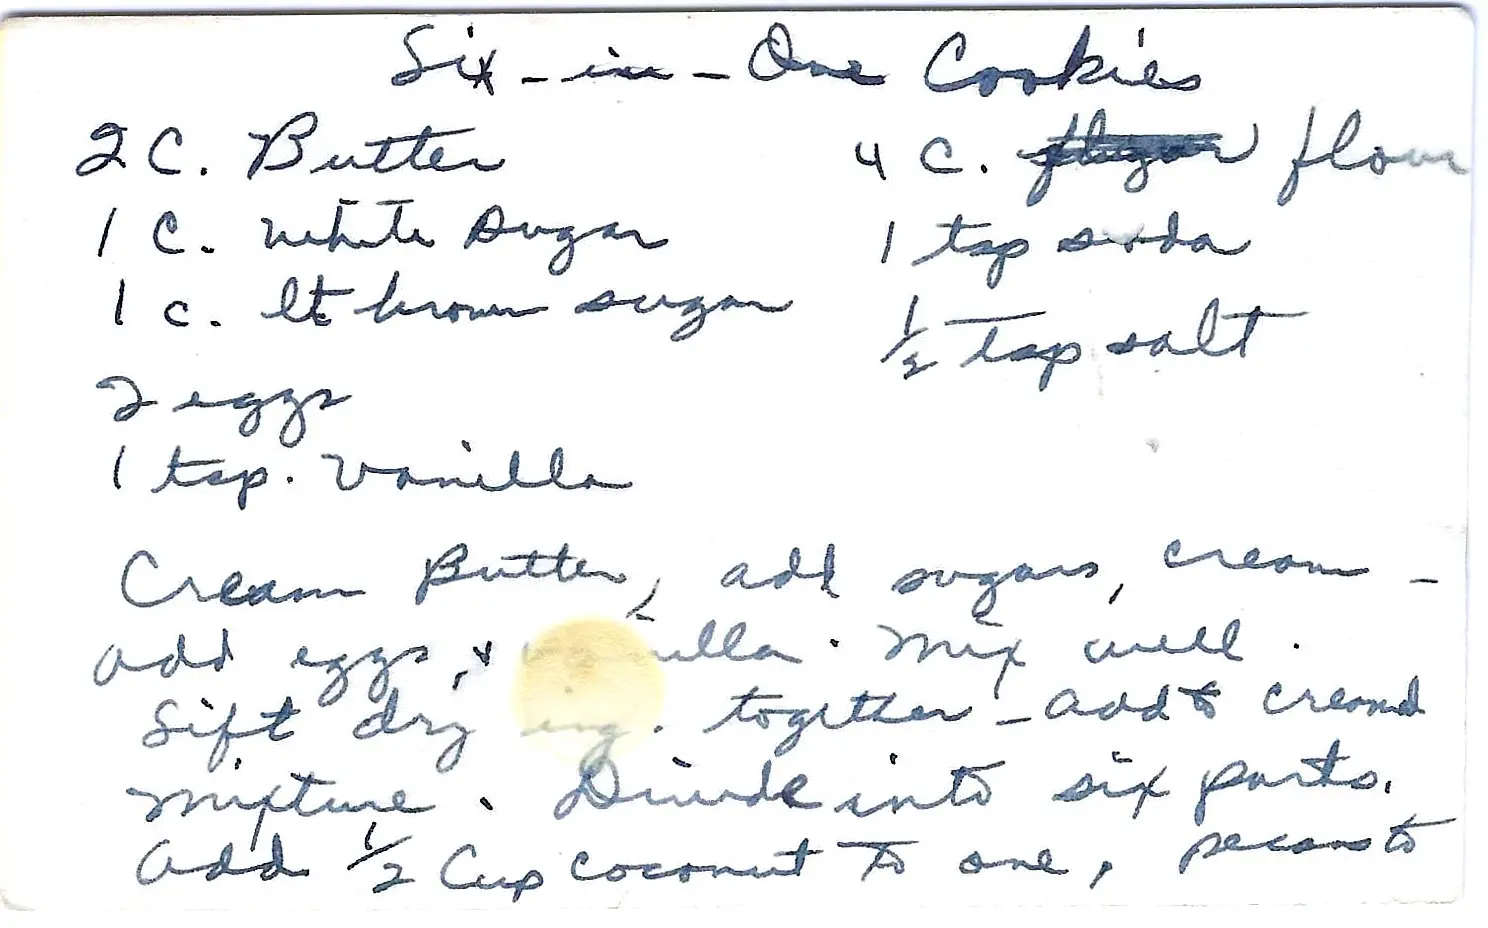 Six-in-One Cookies
2 C. Butter
1 C. white sugar
1 c. lt brown sugar
2 eggs
1 tsp. vanilla
4 C. flour
1 tsp soda
1/2 tsp salt
Cream Butter, add sugars, cream -
add eggs, & vanilla. Mix well.
Sift dry ing. together - add to creamed
mixture. Divide into six parts.
Add 1/2 Cup coconut to one, pecans to